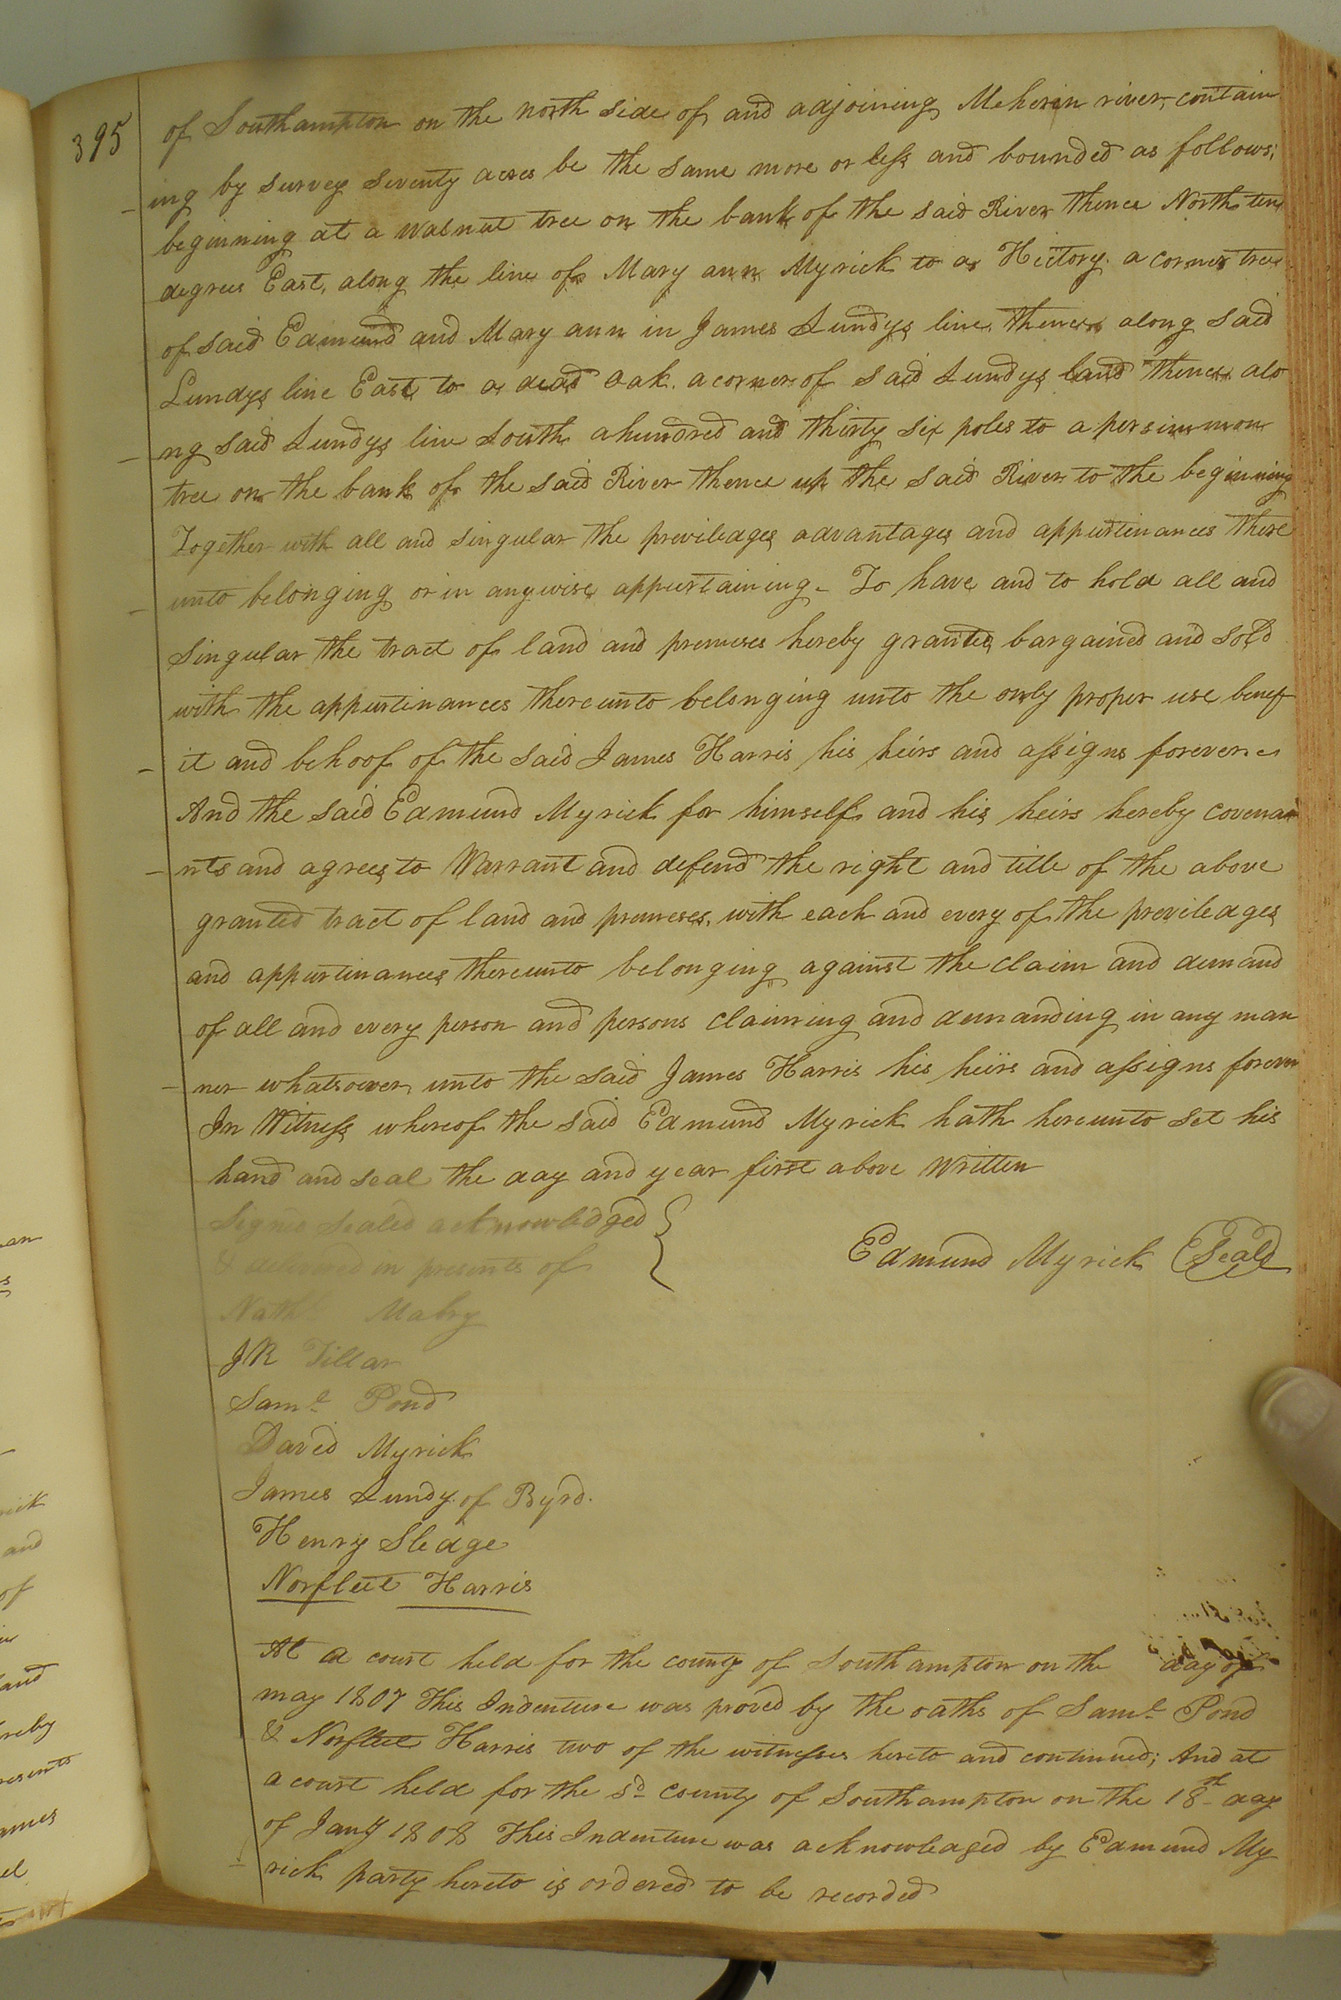 395
of Southampton on the north side of and adjoining Meherin river, contain
ing by survey seventy acres be the same more or less and bounded as follows;
beginning at a walnut tree on the bank of the said River thence North ten
degrees East, along the line of Mary ann Myrick to a Hictory. a corner tree
of said Edmund and Mary ann in James Lundys line, thence along said
Lundys line East to a dead oak. a corner of said Lundys land thence alo
ng said Lundys line South a hundred and thirty six poles to a persimmon
tree on the bank of the said River thence up the said River to the beginning
Together with all and singular the previledges advantages and appurtinances there
unto belonging or in anywise appurtaining - To have and to hold all and
singular the tract of land and premises hereby granted, bargained and sold
with the appurtinances thereunto belonging unto the only proper use benef
it and behoof of the said James Harris his heirs and assigns forever.
And the said Edmund Myrick for himself and his heirs hereby covena
nts and agrees to Warrant and defend the right and title of the above
granted tract of land and premeses, with each and every of the previledges
and appurtinances thereunto belonging against the claim and demand
of all and every person and persons claiming and demanding in any man
ner whatsoever, unto the said James Harris his heirs and assigns forever
In Witness whereof the said Edmund Myrick hath hereunto set his
hand and seal the day and year first above Written
Signed sealed acknowledged
in presents of
Edmund Myrick Seald
Nath Mabry
JR Tillar
Saml. Pond
David Myrick
James Lundy of Byrd.
Henry Sledge
Norfleet Harris
At a court held for the county of Southampton on the day of
may 1807 This Indenture was proved by the oaths of Saml. Pond
& Norfleet Harris two of the witnesses hereto and continued; And at
a court held for the sd. County of Southampton on the 18th day
of Jany 1808 This Indenture was acknowledged by Edmund My
rick party hereto is ordered to be recorded